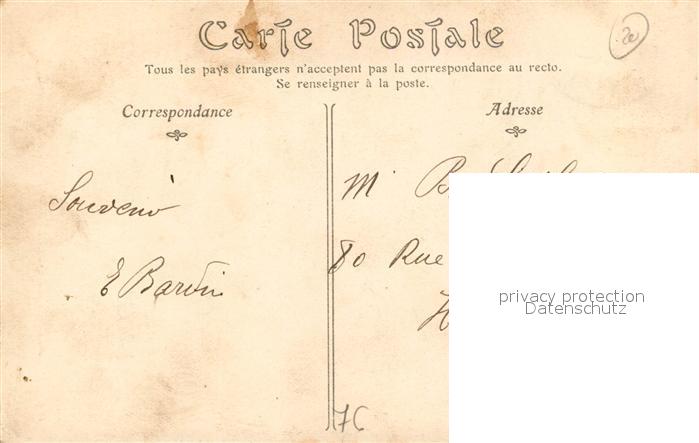 Carte Postale
Tous les pays étrangers n'acceptent pas la correspondance au recto.
Se renseigner à la poste.
Correspondance
Souvenir
E Bardin
Adresse
Mr B
80 Rue
privacy protection
Datenschutz
7C